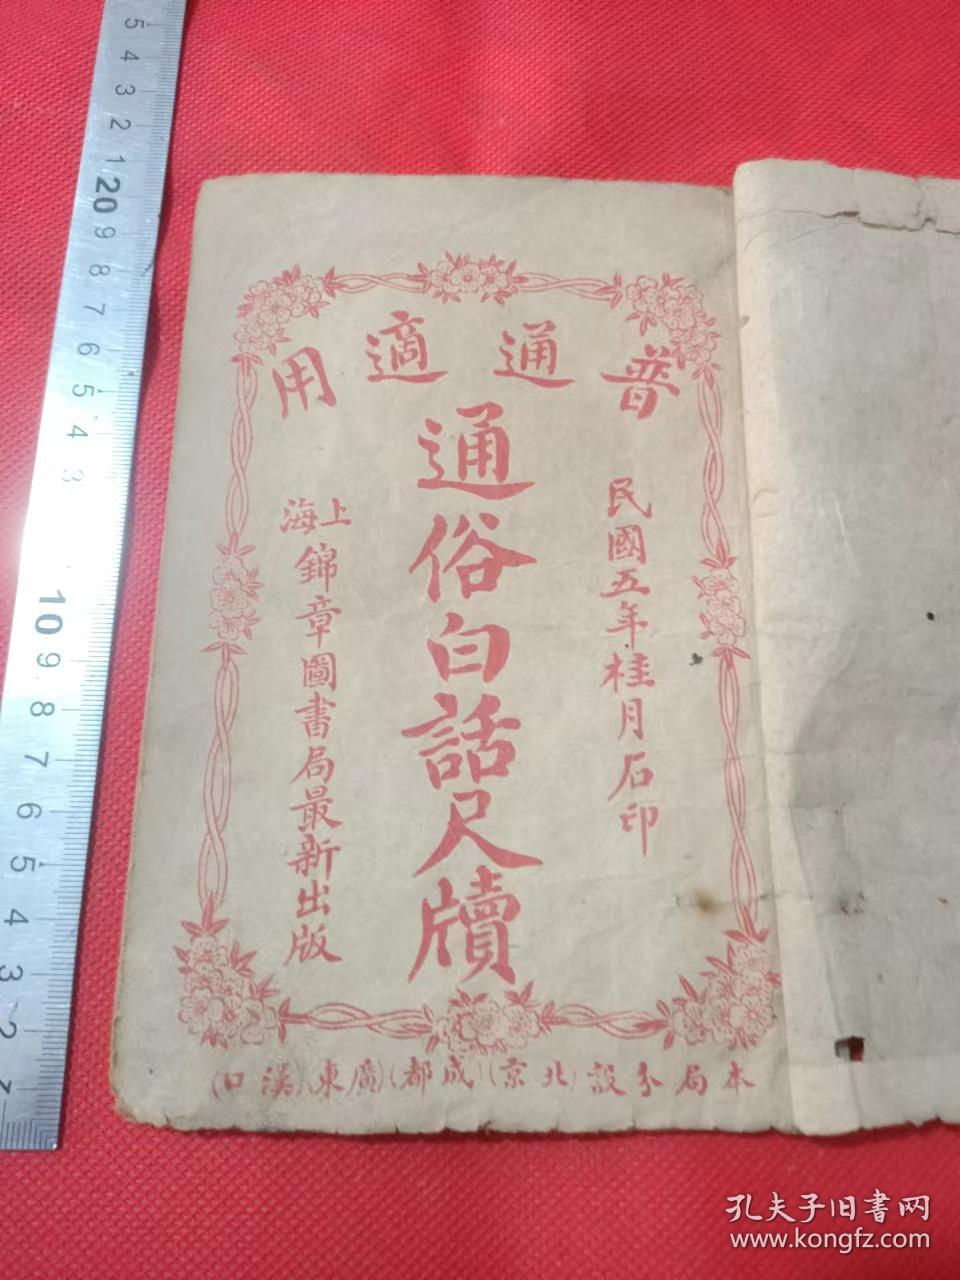 普通適用
民國五年桂月石印
通俗白話尺牘
上海
錦章圖書局最新出版
本局分設(北京)(成都)(廣東)(漢口)
5 4 3 2 1 20 9 8 7 6 5 4 3
10 9 8 7 6 5 4 3 2
孔夫子旧書网
www.kongfz.com